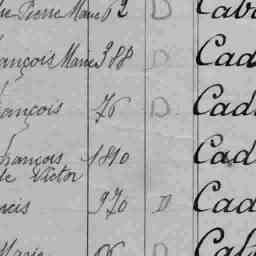 Pierre Marie 62 D Cab
rançois Marie 388 D Cad
rançois 76 D Cad
François 1810 Cad
de Victor
rcis 970 D Cad
Marie 06 D Cab